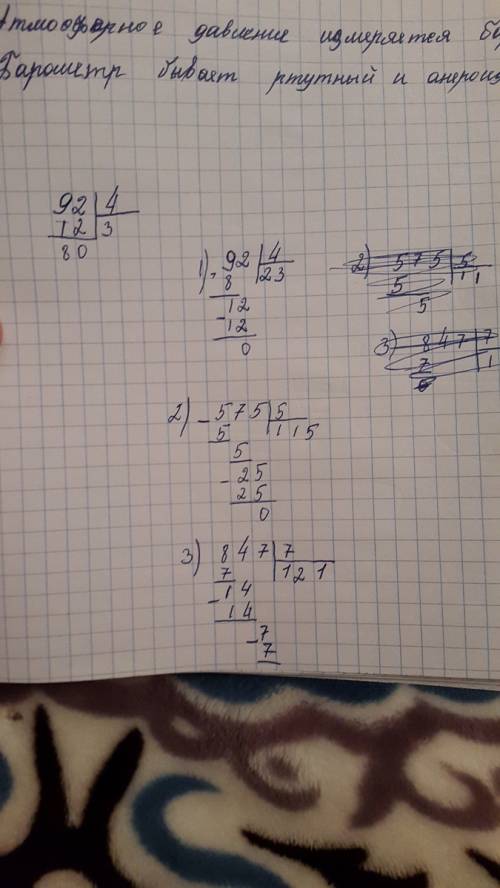 Атмосферное давление измеряется
Барометр бывает ртутный и анероид
92 | 4
12 | 3
80
1) - 92 | 4
8 | 23
- 12
12
0
2) 575 | 5
5 | 11
5
3) 847 | 7
7 | 1
2) - 575 | 5
5 | 115
5
- 25
25
0
3) 847 | 7
7 | 121
- 14
14
- 7
7